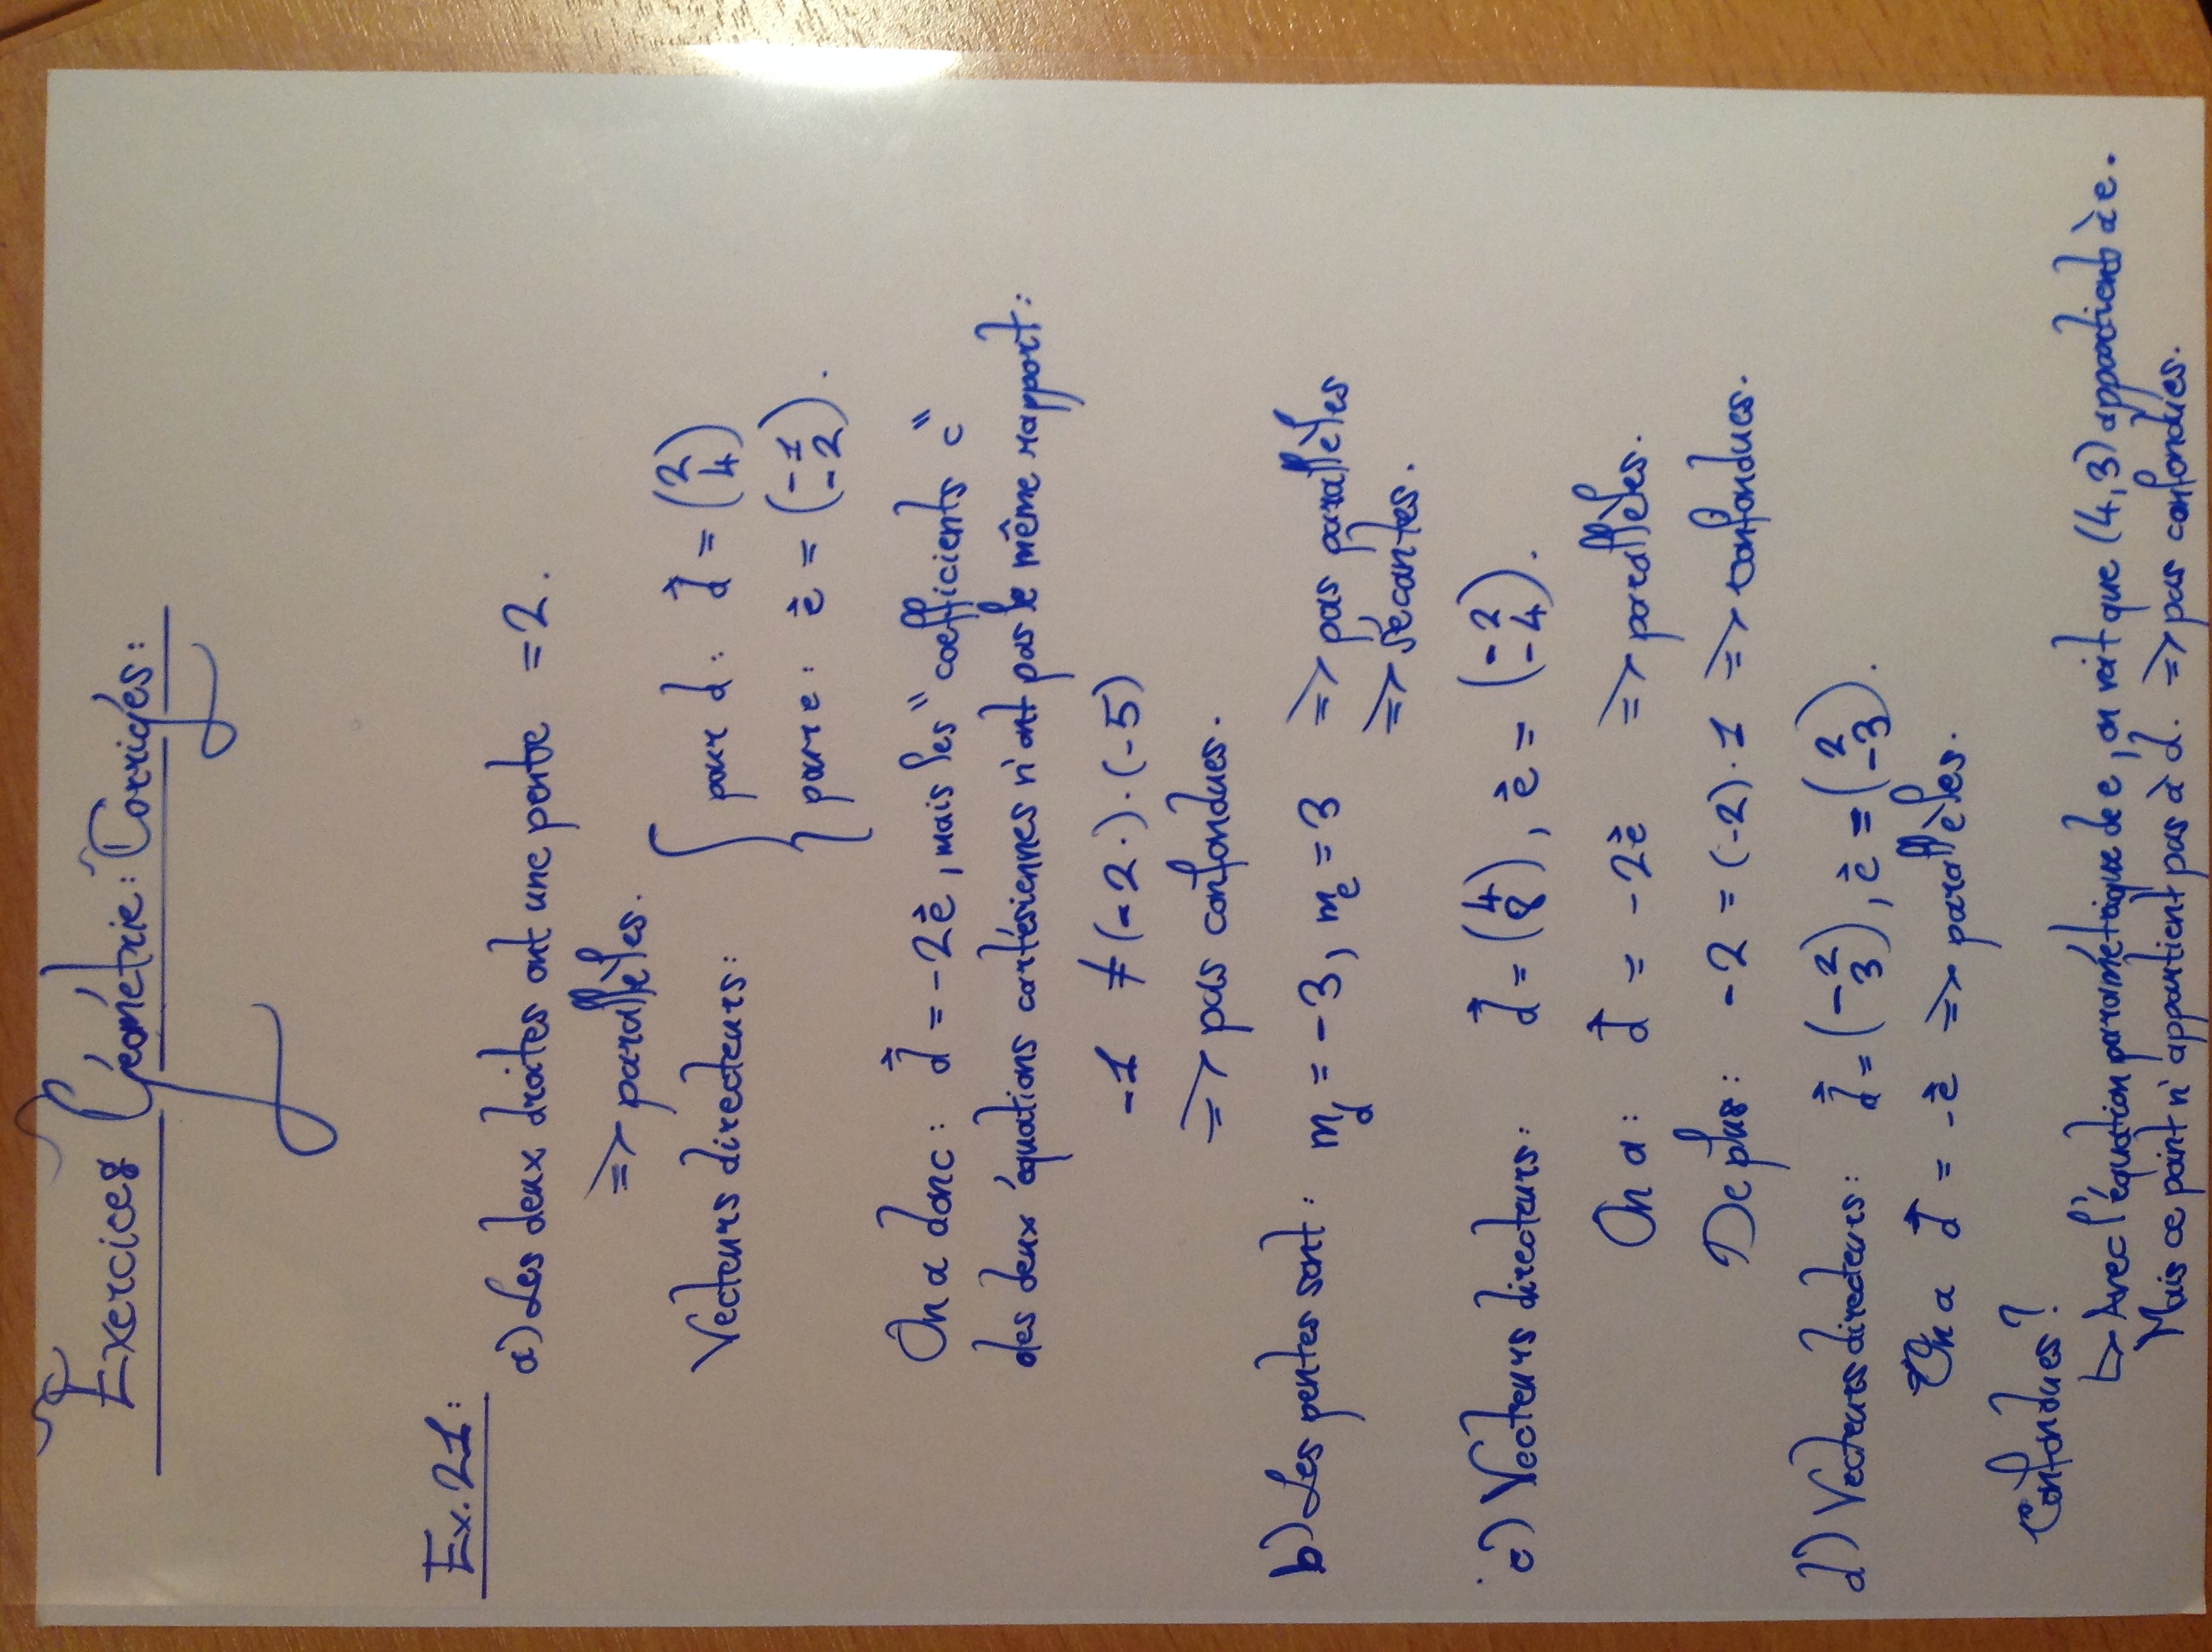 Exercices Géométrie : Corrigés :
Ex. 21 :
a) Les deux droites ont une pente = 2.
=> parallèles.
Vecteurs directeurs : { pour d : d⃗ = (2 4)
pour e : e⃗ = (-1 -2).
On a donc : d⃗ = -2e⃗, mais les "coefficients c"
des deux équations cartésiennes n'ont pas le même rapport :
-1 ≠ (-2·)·(-5)
=> pas confondues.
b) Les pentes sont : m_d = -3, m_e = 3 => pas parallèles
=> sécantes.
c) Vecteurs directeurs : d⃗ = (4 8), e⃗ = (-2 -4).
On a : d⃗ = -2e⃗ => parallèles.
De plus : -2 = (-2)·1 => confondues.
d) Vecteurs directeurs : d⃗ = (-2 3), e⃗ = (2 -3).
On a d⃗ = -e⃗ => parallèles.
Confondues ?
↳ Avec l'équation paramétrique de e, on voit que (4,3) appartient à e.
Mais ce point n'appartient pas à d. => pas confondues.